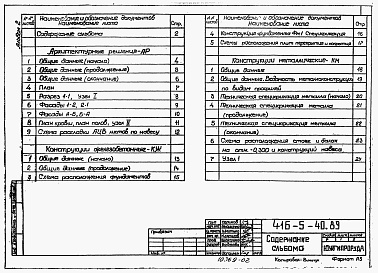 Наименование и обозначение документов
Наименование листа
Стр.
Содержание альбома 2
Архитектурные решения-АР
1 Общие данные (начало) 4
2 Общие данные (продолжение) 5
3 Общие данные (окончание) 6
4 План 7
5 Разрез 1-1, Узел I 8
6 Фасады 1-2, 2-1 9
7 Фасады А-Б, Б-А 10
8 План кровли, план полов, узел II 11
9 Схема раскладки АЦВ листов по навесу 12
Конструкции железобетонные-КЖ
1 Общие данные (начало) 13
2 Общие данные (окончание) 14
3 Схема расположения фундаментов 15
Наименование и обозначение документов
Наименование листа
Стр.
4 Конструкция фундамента Фм1 Спецификация 16
5 Схема расположения плит перекрытия и покрытия 17
Конструкции металлические-КМ
1 Общие данные 18
2 Общие данные. Ведомость металлоконструкций
по видам профилей 19
3 Техническая спецификация металла (начало) 20
4 Техническая спецификация металла 21
(продолжение)
5 Техническая спецификация металла 22
(окончание)
6 Схема расположения стоек и балок 23
7 Узел 1
416-5-40.89
Содержание
альбома
Привязан
Копировал
Формат А3